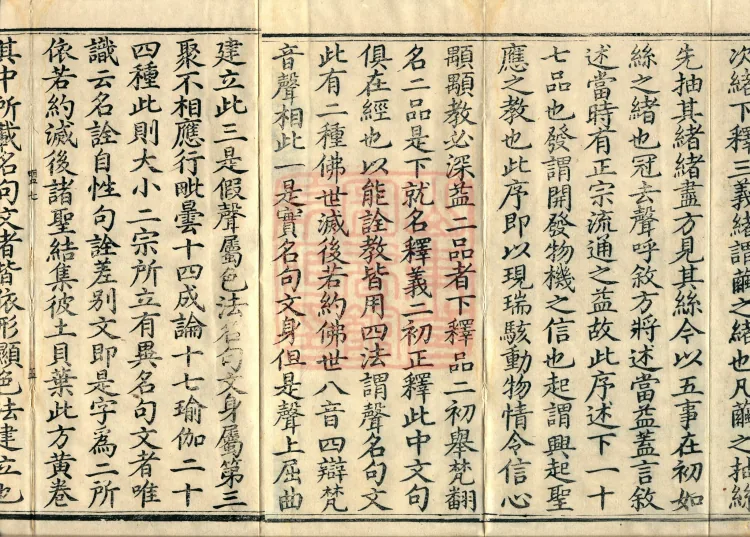 次緒下釋三義緒謂繭之緒也凡繭之抽絲
先抽其緒緒盡方見其絲今以五事在初如
絲之緒也冠去聲呼敘方將述當益蓋言敘
述當時有正宗流通之益故此序述下一十
七品也發謂開發物機之信也起謂興起聖
應之教也此序即以現瑞駭動物情令信心
顯顯教必深益二品者下釋品二初舉梵翻
名二品是下就名釋義二初正釋此中文句
俱在經也以能詮教皆用四法謂聲名句文
此有二種佛世滅後若約佛世八音四辯梵
音聲相此一是實名句文身但是聲上屈曲
建立此三是假聲屬色法名句文身屬第三
聚不相應行毗曇十四成論十七瑜伽二十
四種此則大小二宗所立有異名句文者唯
識云名詮自性句詮差别文即是字爲二所
依若約滅後諸聖結集彼土貝葉此方黃卷
其中所載名句文者皆依形顯色法建立也